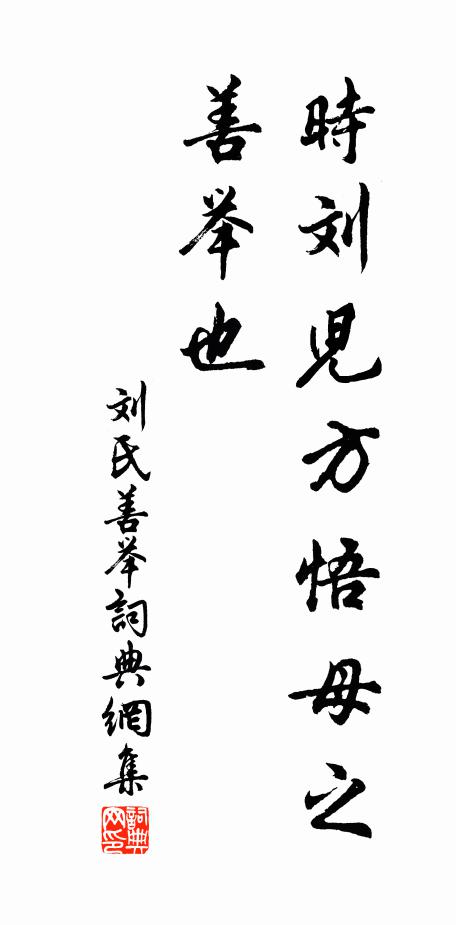 時刘児方悟母之
善举也
刘氏善举詞典網集
詞典网印